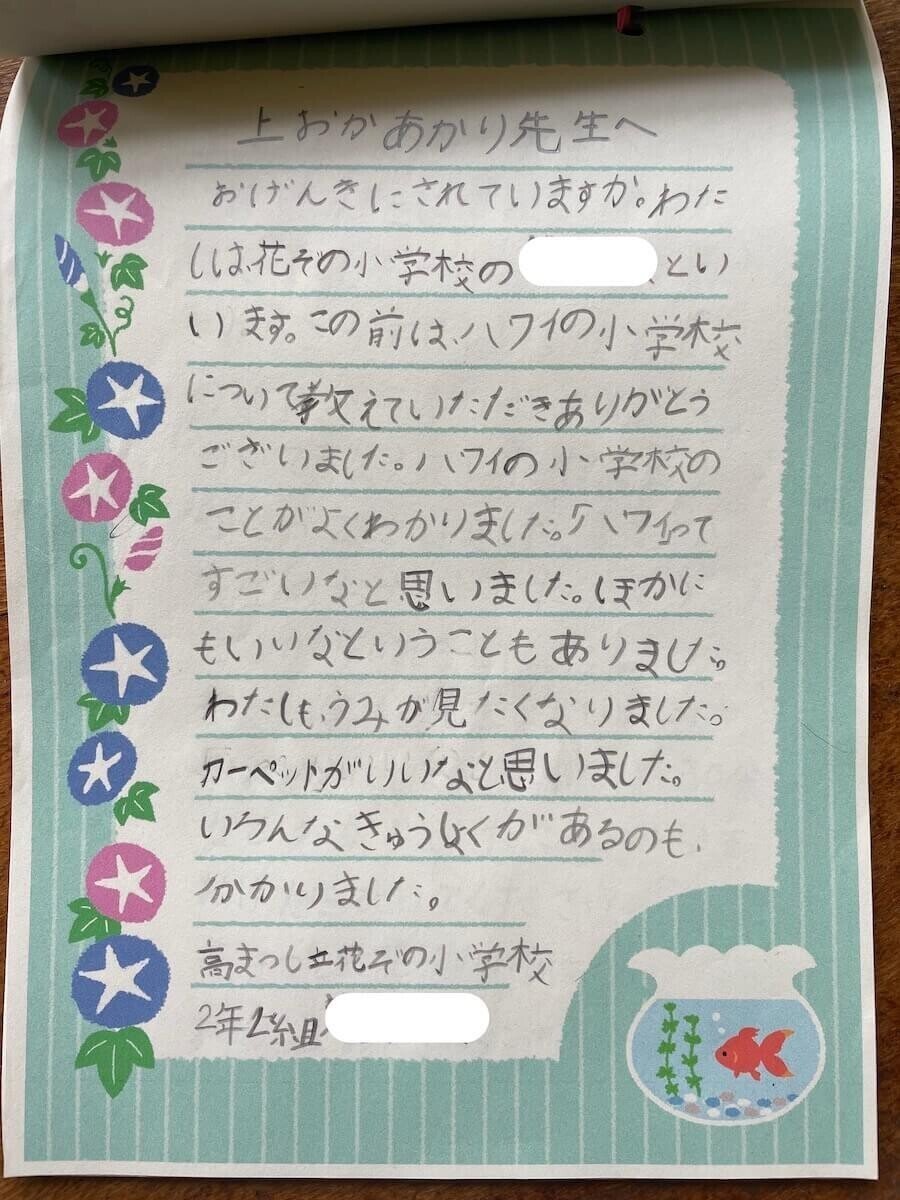 上おかあかり先生へ
おげんきにされていますか。わた
しは、花ぞの小学校の、とい
います。この前は、ハワイの小学校
について教えていただきありがとう
ございました。ハワイの小学校の
ことがよくわかりました。「ハワイ」って
すごいなと思いました。ほかに
もいいなということもありました。
わたしも、うみが見たくなりました。
カーペットがいいなと思いました。
いろんなきゅうしょくがあるのも、
分かりました。
高まつし立花ぞの小学校
2年2組